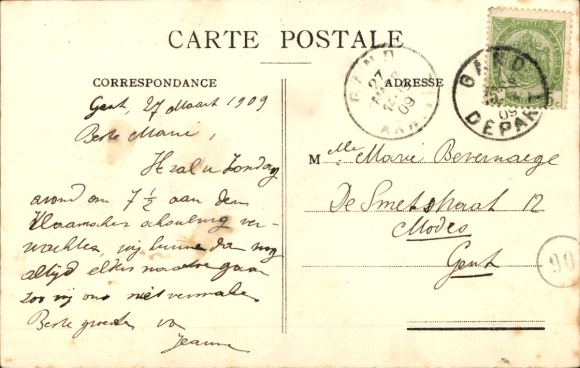 CARTE POSTALE
CORRESPONDANCE
ADRESSE
Gent, 27 Maart 1909
Beste Marie,
Ik zal u Zondag
avond om 7 1/2 aan den
Vlaamschen schouwburg ver-
wachten, wij kunnen dan nog
altijd elders naartoe gaan
zoo wij ons niet vermaken
Beste groeten van
Jeanne
M elle Marie Bevernaege
De Smetstraat 12
Modes
Gent
GAND
27
09
GAND
09
DEPART
90